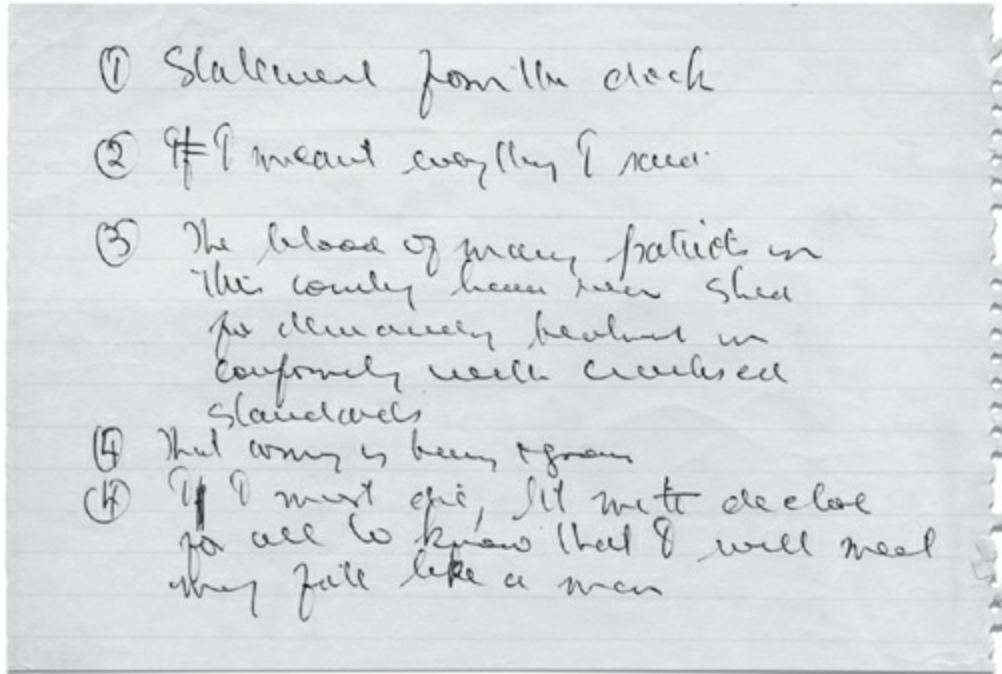 ① Statement from the dock
② I meant everything I said.
③ The blood of many patriots in
this country have been shed
for demanding treatment in
conformity with civilised
standards
④ That army is being
If I must die, let me declare
for all to know that I will meet
my fate like a man